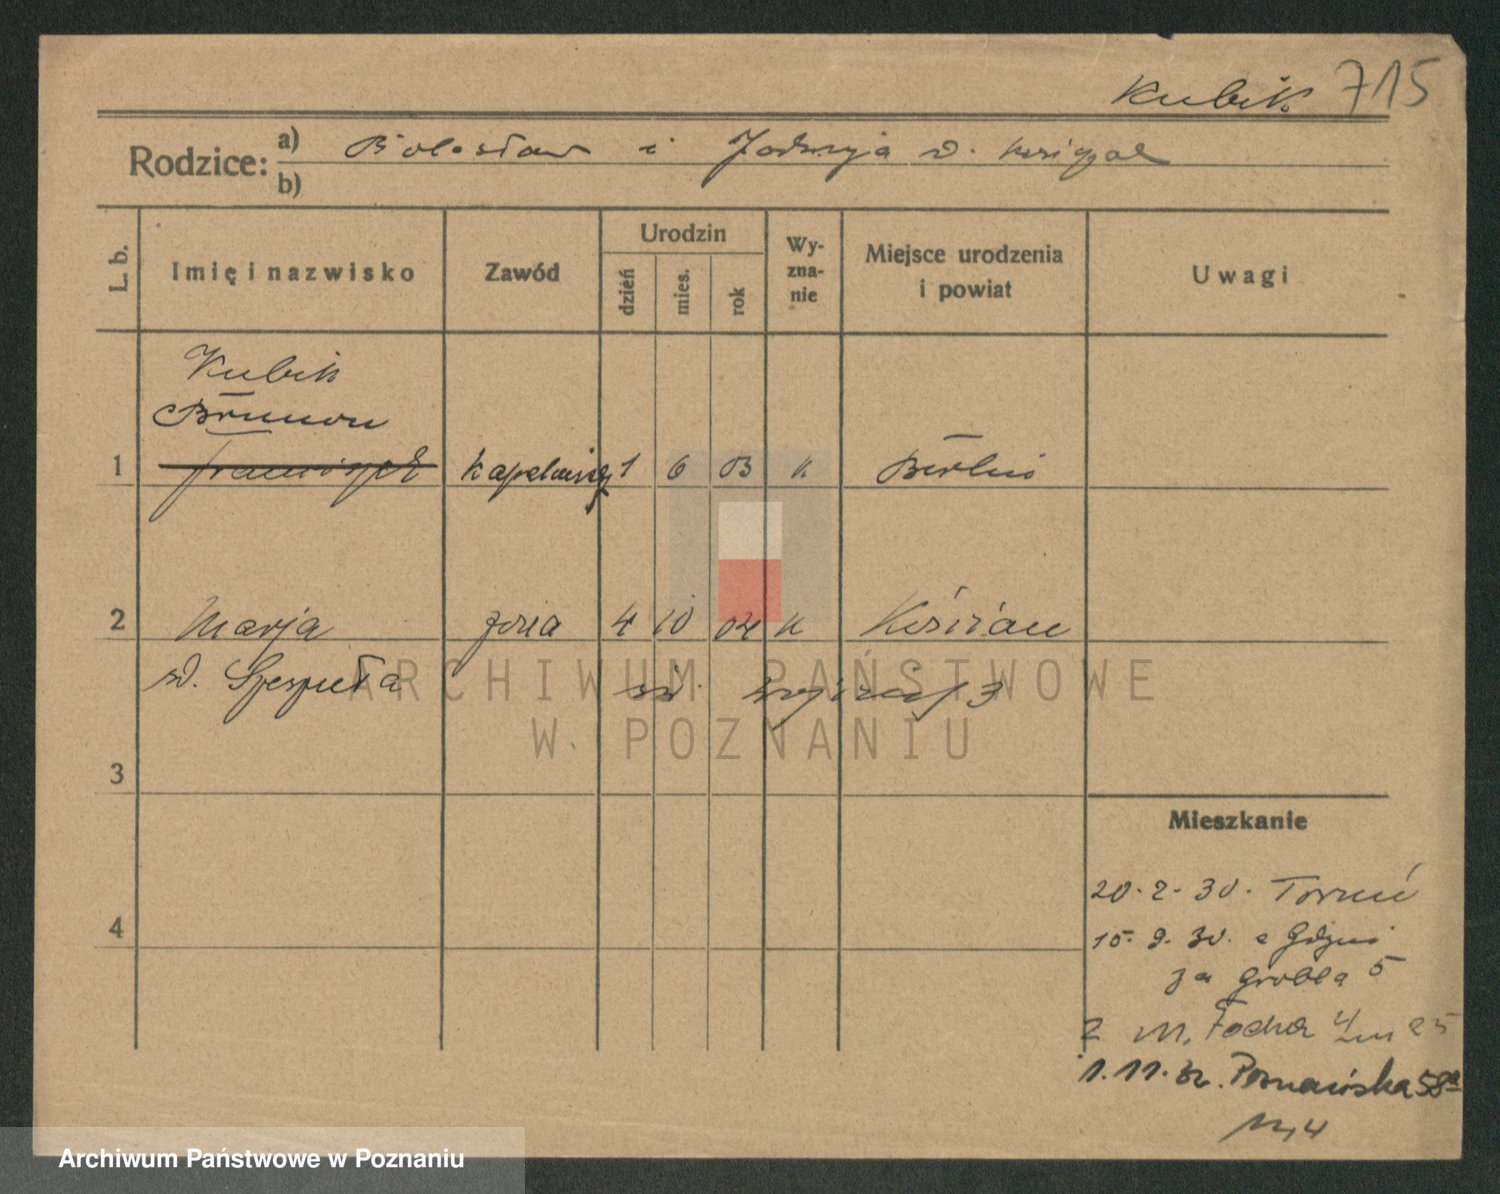 Kubik 715
Rodzice:
a) Bolesław i Jadwiga d.
b)
L. b.
Imię i nazwisko
Zawód
Urodzin
dzień
mies.
rok
Wy-
zna-
nie
Miejsce urodzenia
i powiat
Uwagi
Kubik
Brunon
1 Franciszek 1 6 03 K Berlin
2 Marja żona 4 10 04 K Kościan
3
4
ARCHIWUM PAŃSTWOWE
W POZNANIU
Mieszkanie
20.2.30. Toruń
15.9.30. z Gdyni
za Groblą 5
2 M. Focha 4 m 25
1.11.32. Poznańska 58a
m 4
Archiwum Państwowe w Poznaniu